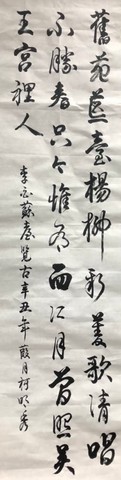 舊苑荒臺楊柳新菱歌清唱
不勝春只今惟有西江月曾照吴
王宮裡人
李白蘇臺覽古辛丑年葭月柯明秀